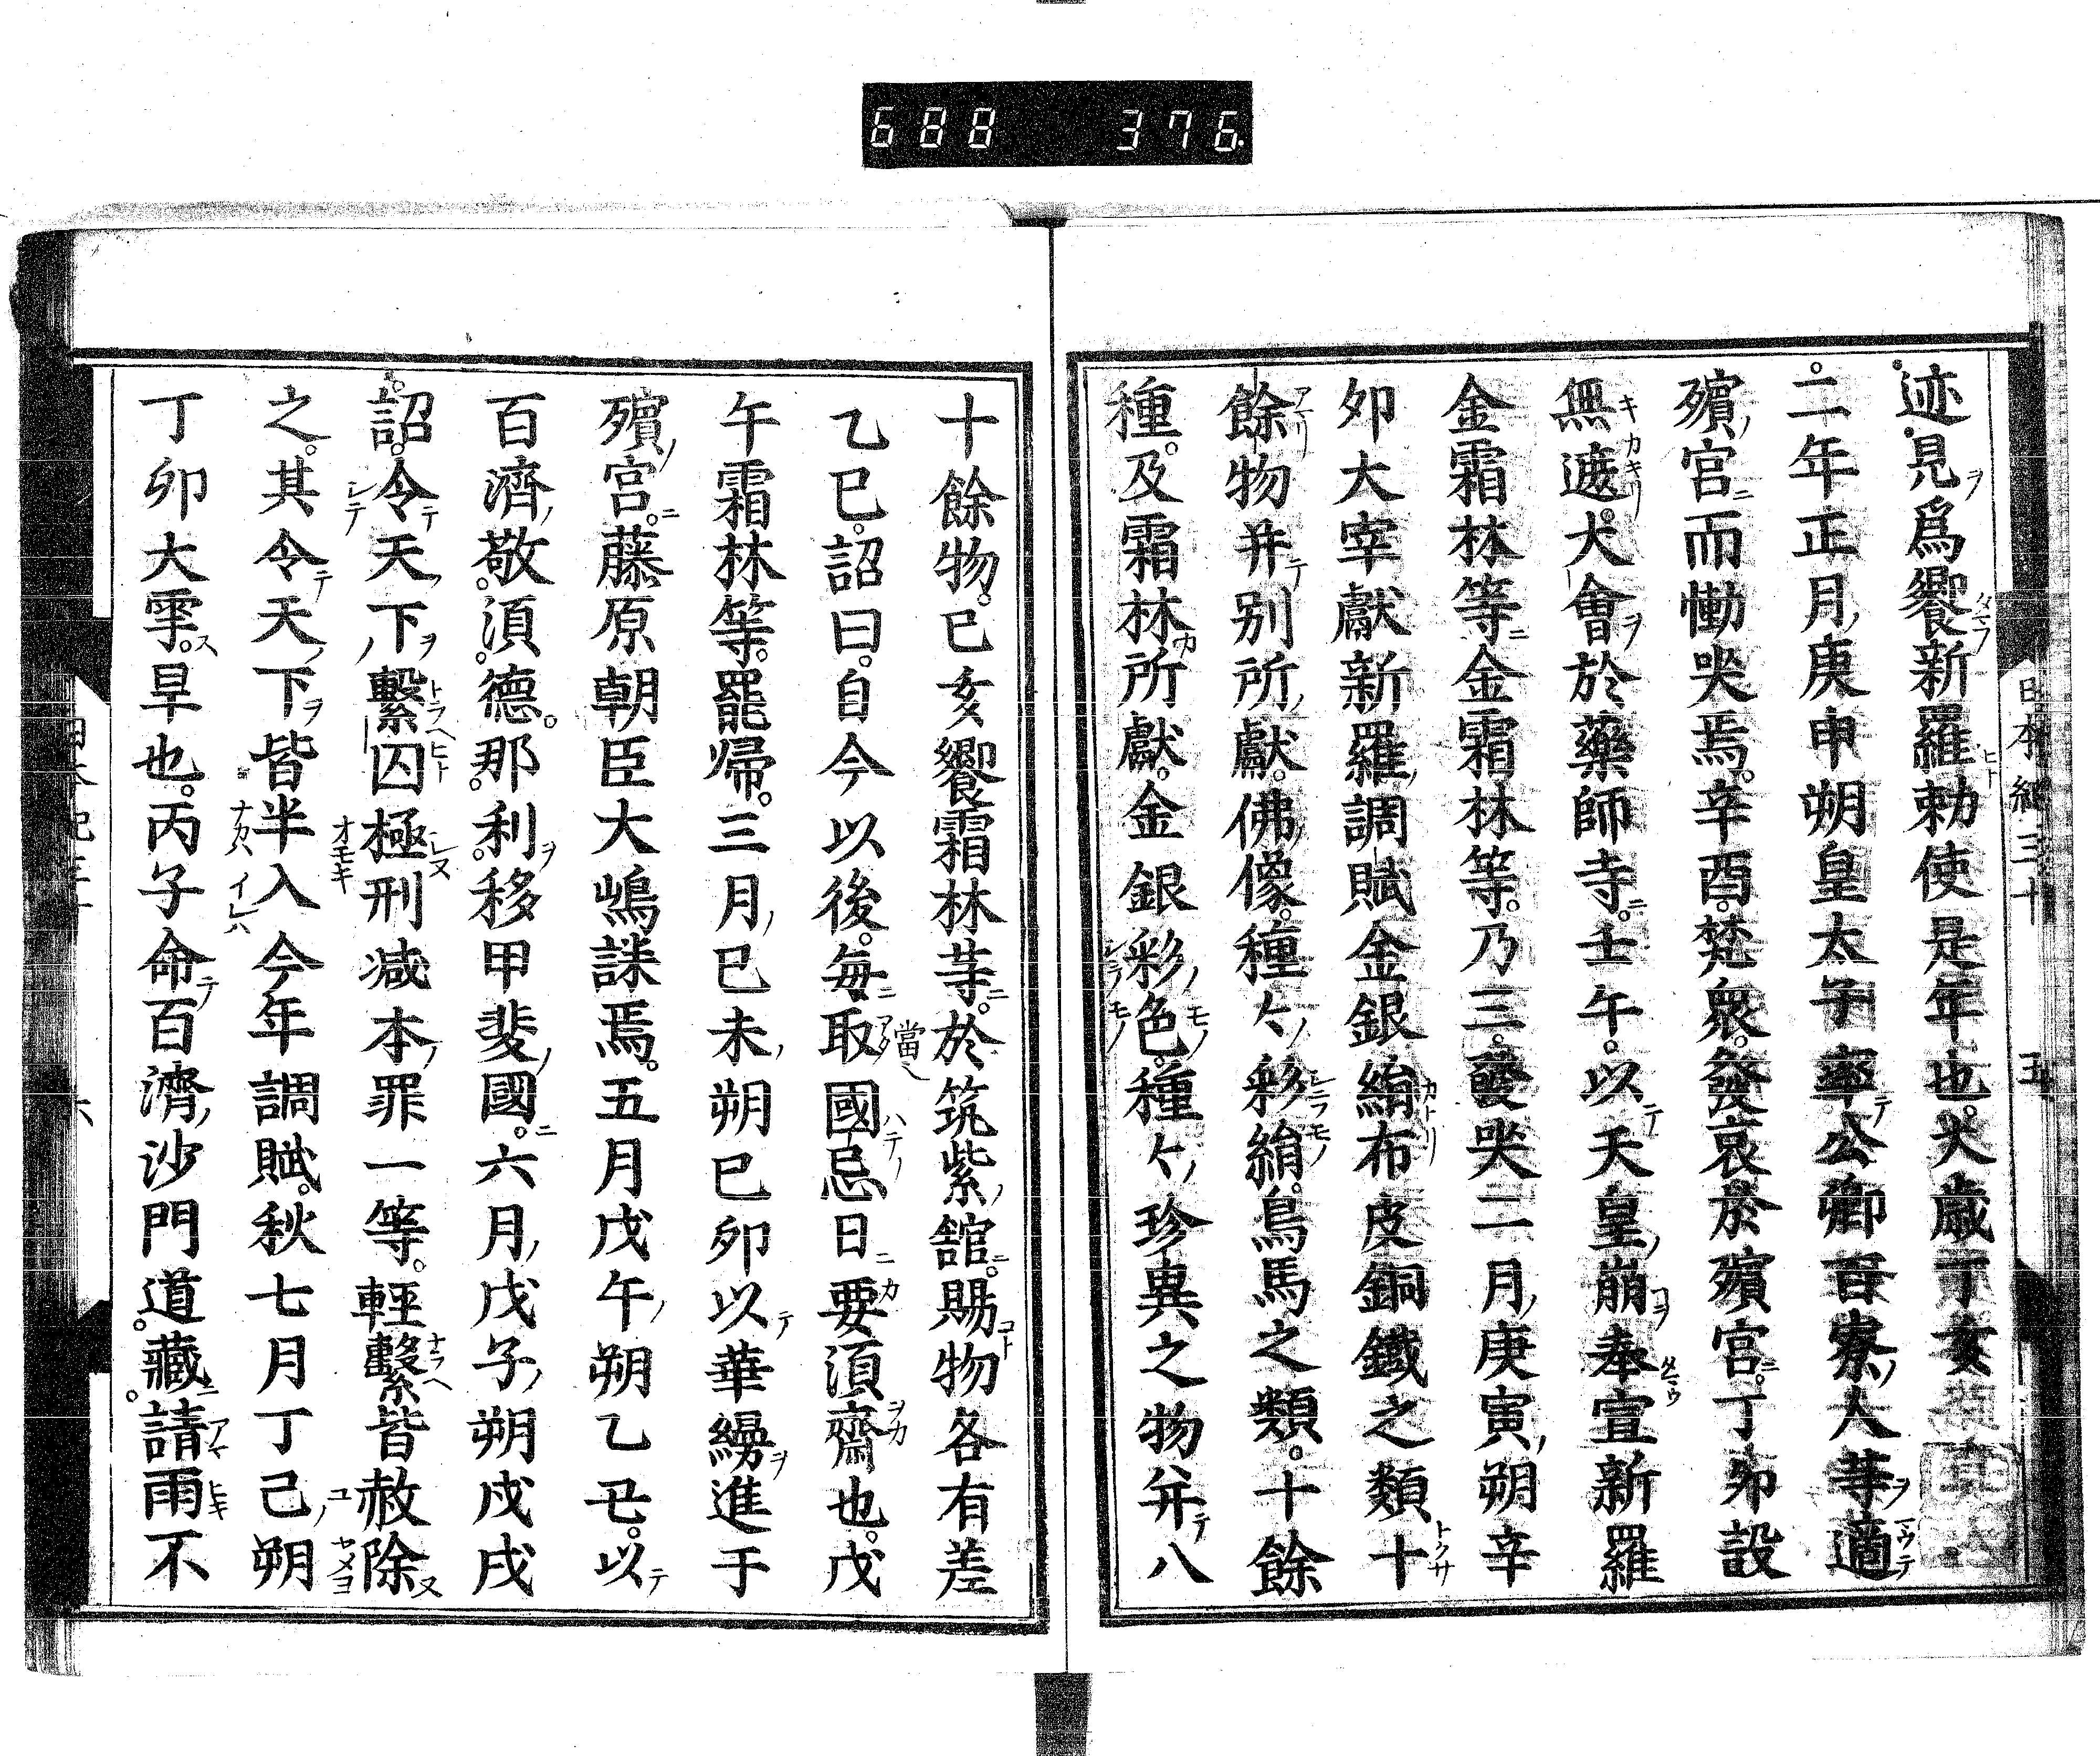 688 376.
迹見爲饗新羅勅使是年也大歳丁亥
二年正月庚申朔皇太子率公卿百寮人等適
殯宮而慟哭焉辛酉梵衆發哀於殯宮丁卯設
無遮大會於藥師寺壬午以天皇崩奉宣新羅
金霜林等金霜林等乃三發哭二月庚寅朔辛
卯大宰獻新羅調賦金銀絹布皮銅鐵之類十
餘物并别所獻佛像種々彩絹鳥馬之類十餘
種及霜林所獻金銀彩色種々珍異之物并八
日本紀三十 五
十餘物己亥饗霜林等於筑紫舘賜物各有差
乙巳詔曰自今以後毎取國忌日要須齋也戊
午霜林等罷帰三月己未朔己卯以華縵進于
殯宮藤原朝臣大嶋誄焉五月戊午朔乙丑以
百濟敬須德那利移甲斐國六月戊子朔戊戌
詔令天下繋囚極刑減本罪一等輕繋皆赦除
之其令天下皆半入今年調賦秋七月丁巳朔
丁卯大雩旱也丙子命百濟沙門道藏請雨不